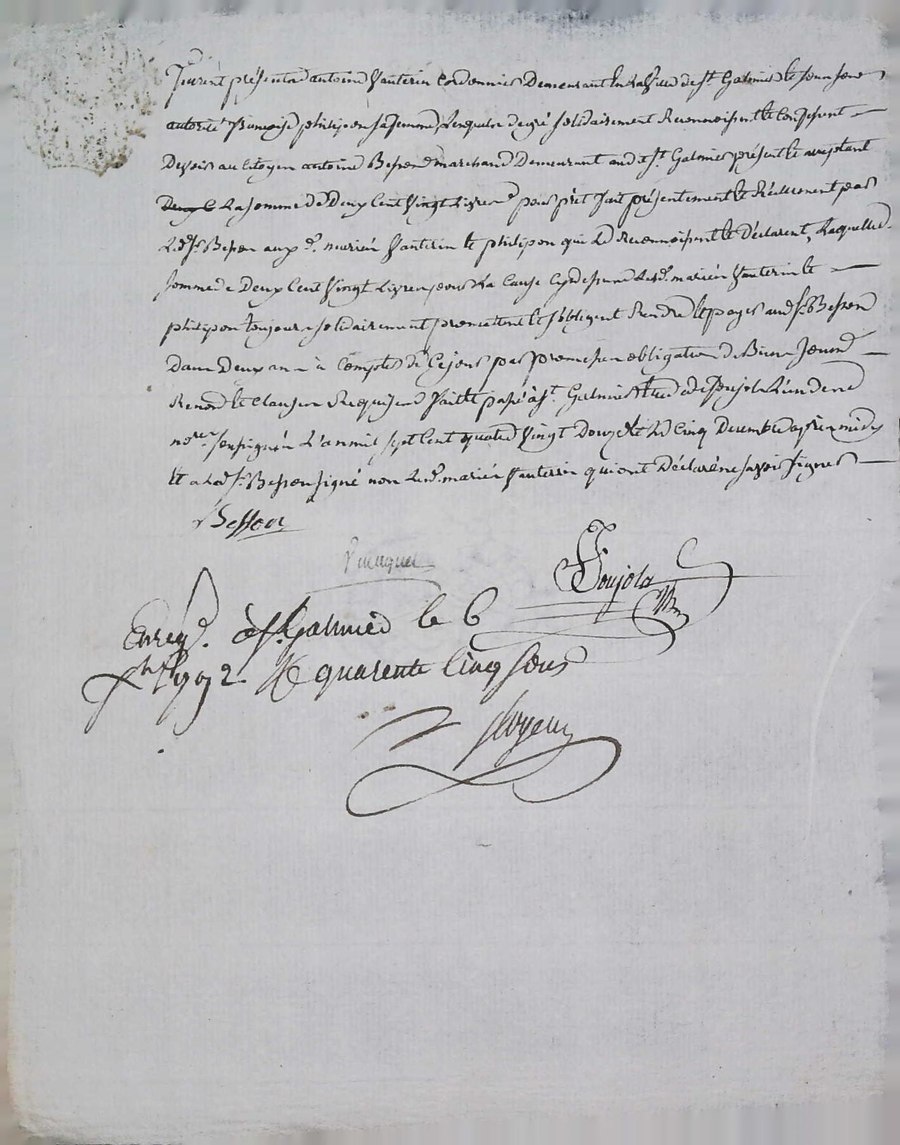 furent présents antoine Vanterin Cordonnier Demeurant En La Ville de St. Galmier et sous son
autorité françoise philipon sa femme, Lesquels de gré solidairement Reconnoissent et Confessent
Devoir au Citoyen antoine Besson marchand Demeurant audit St. Galmier présent et acceptant
La somme de Deux Cent Vingt Livres pour prêt fait présentement et Réellement par
Led. Sr. Besson aux d. mariés Vanterin et philipon qui Le Reconnoissent et Déclarent, Laquelle
somme de Deux Cent Vingt Livres pour La Cause Cy dessus Lesd. mariés Vanterin et
philipon toujours solidairement promettent et s'obligent Rendre et payer aud. Sr. Besson
Dans Deux ans à Compter de Ce jour par promesse obligation de Biens
Renon. et Clauses Requises fait et passé à St. Galmier Etude de poujola L'un des
nores. soussignés L'an mil sept Cent quatre Vingt Douze et Le Cinq Decembre après midy
Et a Led. Sr. Besson signé non Lesd. mariés Vanterin qui ont Déclaré ne savoir signer
Besson
Poujola
Enregé. à St. Galmier le 6
Xbre 1792. R quarente Cinq sous